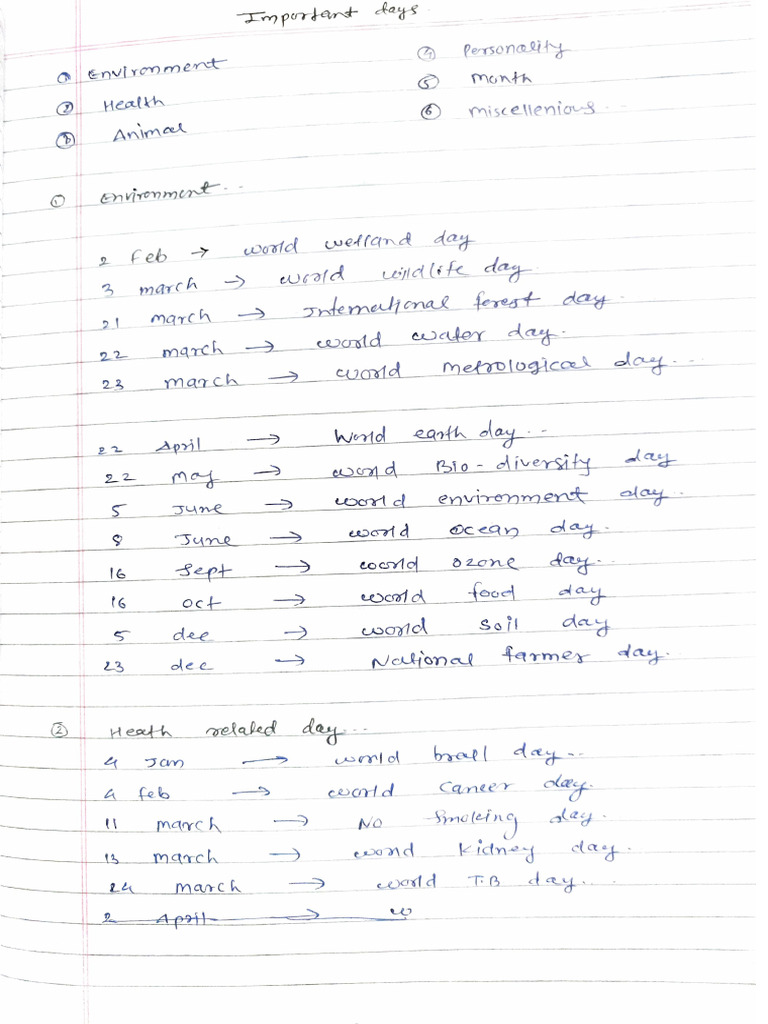 Important days
① Environment
② Health
③ Animal
④ Personality
⑤ Month
⑥ miscellenious..
① Environment..
2 Feb → world wetland day
3 march → world wildlife day
21 march → International forest day.
22 march → world water day.
23 march → world metrological day...
22 April → World earth day..
22 may → world Bio-diversity day
5 June → world environment day.
8 June → world ocean day.
16 Sept → world ozone day..
16 oct → world food day
5 dec → world soil day
23 dec → National farmer day.
② Heath related day...
4 Jan → world brail day..
4 feb → world Cancer day.
11 march → No Smoking day.
13 march → world kidney day.
24 march → world T.B day...
2 April → w